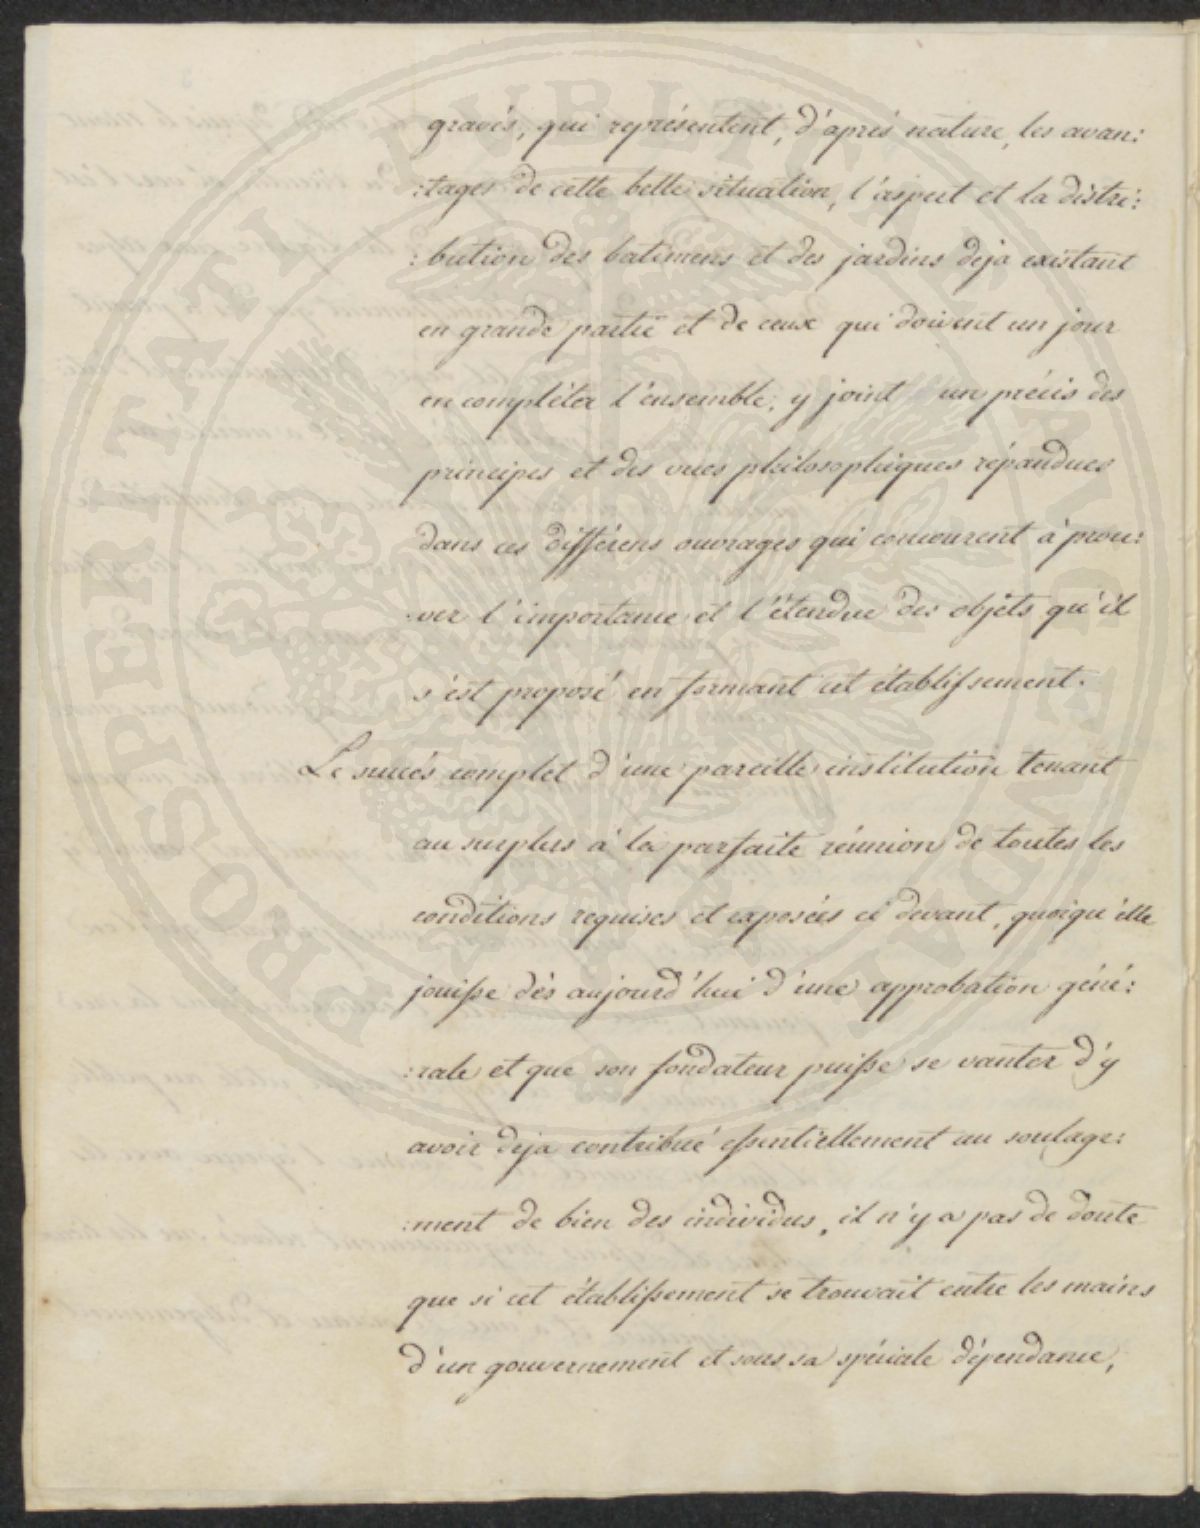 gravés, qui représentent, d'aprés nature, les avan:
:tages de cette belle situation, l'aspect et la distri:
:bution des batimens et des jardins deja existant
en grande partie et de ceux qui doivent un jour
en complèter l'ensemble, y joint un précis des
principes et des vues philosophiques répandues
dans ces différens ouvrages qui concourent à prou:
:ver l'importance et l'étendue des objets qu'il
s'est proposé en formant cet établissement.
Le succés complet d'une pareille institution tenant
au surplus à la parfaite réunion de toutes les
conditions requises et exposées ci devant, quoiqu'elle
jouisse dés aujourd'hui d'une approbation géné:
:rale et que son fondateur puisse se vanter d'y
avoir deja contribué essentiellement au soulage:
:ment de bien des individus, il n'y a pas de doute
que si cet établissement se trouvait entre les mains
d'un gouvernement et sous sa spéciale dépendance,
PROSPERITATI PVBLICAE AVGENDAE